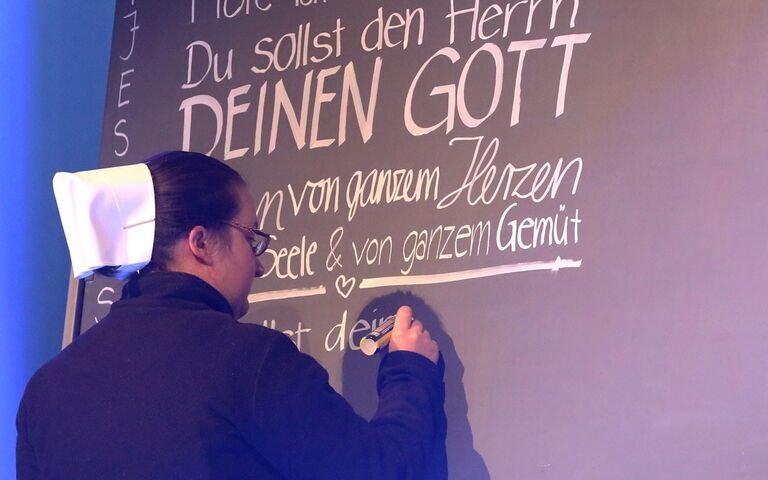 Du sollst den Herrn
DEINEN GOTT
von ganzem Herzen
Seele & von ganzem Gemüt
JES